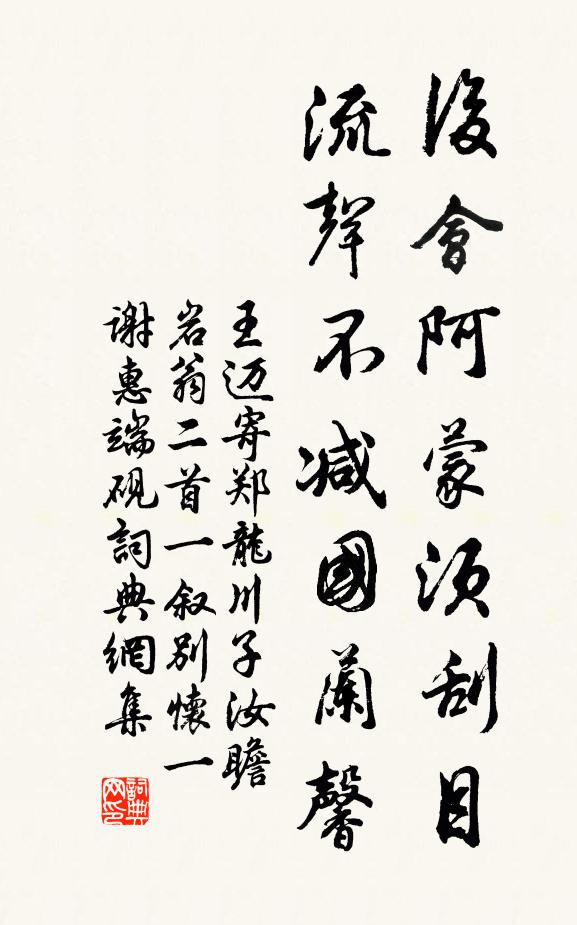 後會阿蒙須刮目
流聲不减國蘭馨
王迈寄郑龍川子汝瞻
岩翁二首一叙别懷一
謝惠端硯詞典網集
詞典网印